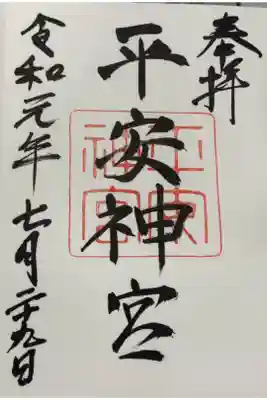 奉拝
平安神宮
平安
神宮
令和元年七月二十九日